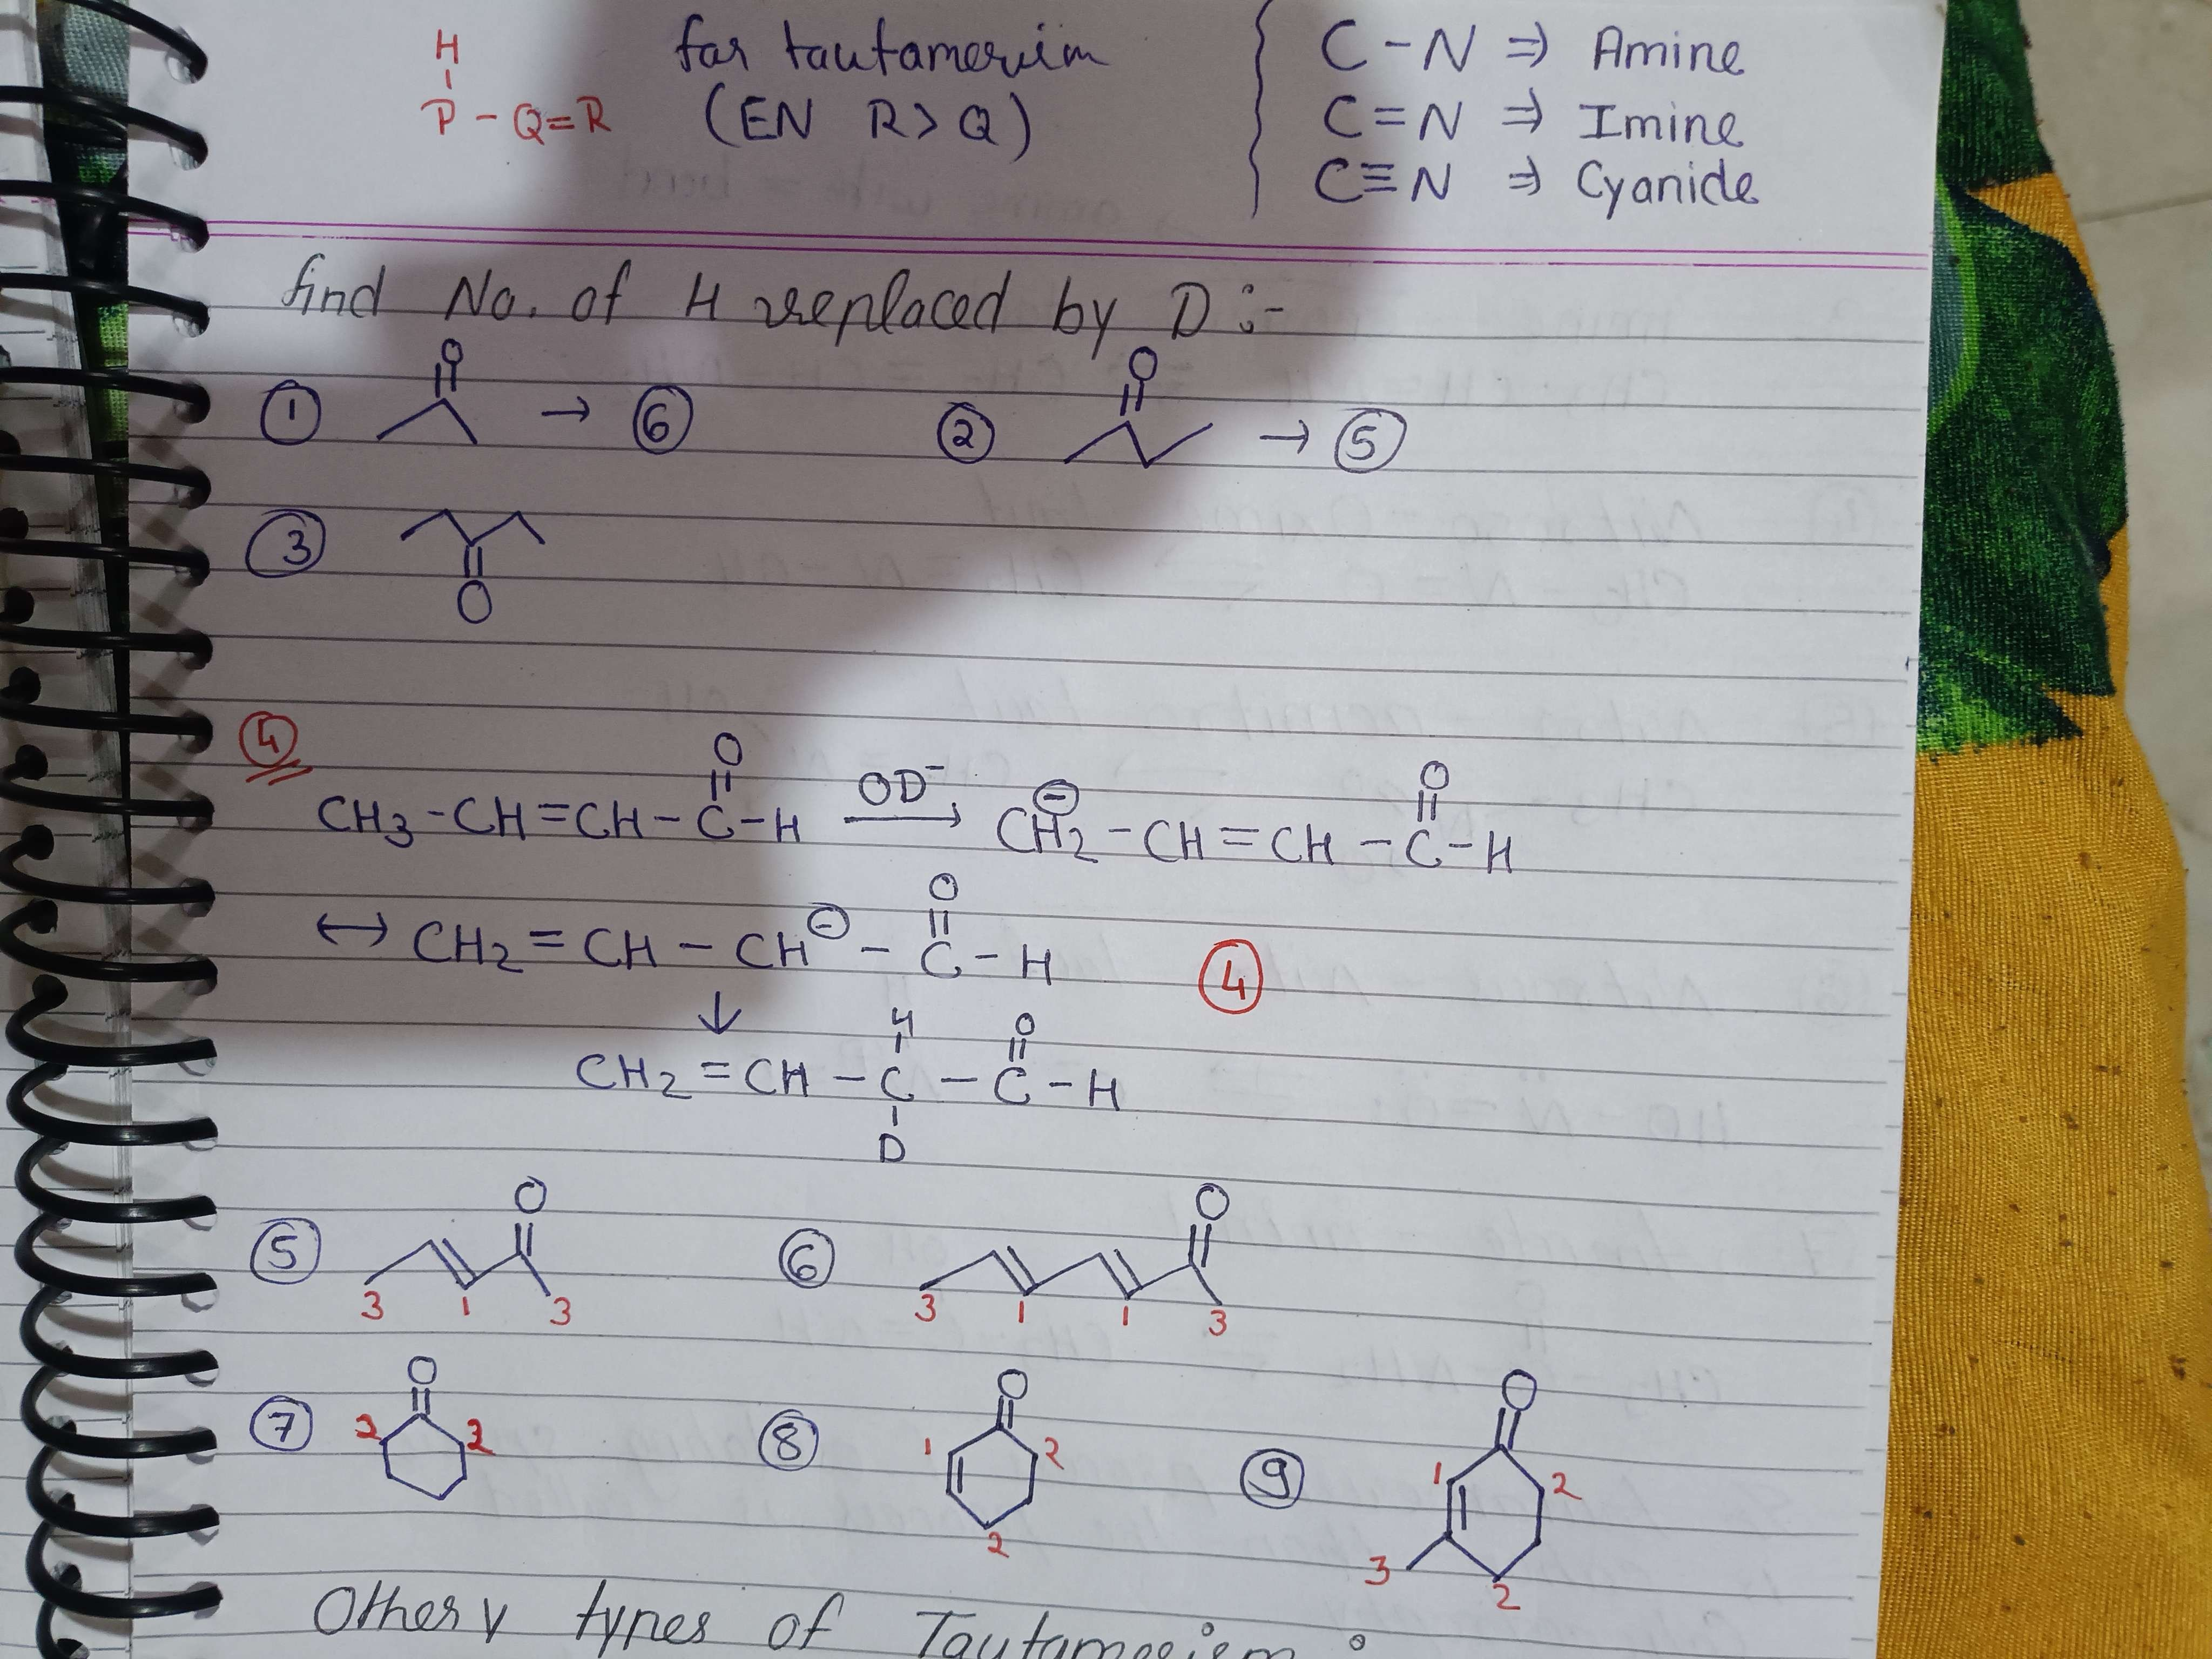 H
P - Q = R
for tautamerim
(EN R > Q)
C - N ⇒ Amine
C = N ⇒ Imine
C ≡ N ⇒ Cyanide
find No. of H replaced by D :-
① O → ⑥
② O → ⑤
③ O
④
CH3 - CH = CH - C(=O) - H —OD⁻→ CH2⊖ - CH = CH - C(=O) - H
↔ CH2 = CH - CH⊖ - C(=O) - H ④
↓
CH2 = CH - C(H)(D) - C(=O) - H
⑤ O 3 1 3
⑥ O 3 1 1 3
⑦ O 2 2
⑧ O 1 2 2
⑨ O 1 2 3 2
Other types of Tautamerism :